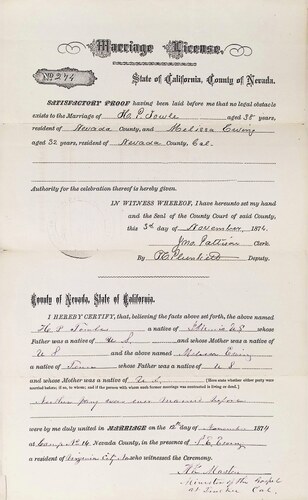 Marriage License.
No. 274
State of California, County of Nevada.
SATISFACTORY PROOF having been laid before me that no legal obstacle
exists to the Marriage of H. P. aged 38 years,
resident of Nevada County, and Melissa Ewing
aged 32 years, resident of Nevada County, Cal.
Authority for the celebration thereof is hereby given.
IN WITNESS WHEREOF, I have hereunto set my hand
and the Seal of the County Court of said County,
this 3d day of November, 1874
Jno. Pattison Clerk.
By Deputy.
County of Nevada, State of California.
I HEREBY CERTIFY, that, believing the facts above set forth, the above named
H. P. a native of whose
Father was a native of U S, and whose Mother was a native of
U S and the above named Melissa Ewing
a native of whose Father was a native of U S
and whose Mother was a native of U S,
Neither before
were by me duly united in MARRIAGE on the 12th day of November 1874
at Camp No 14, Nevada County, in the presence of Ewing
a resident of Virginia City who witnessed the Ceremony.
Minister of the Gospel
at Truckee Cal.